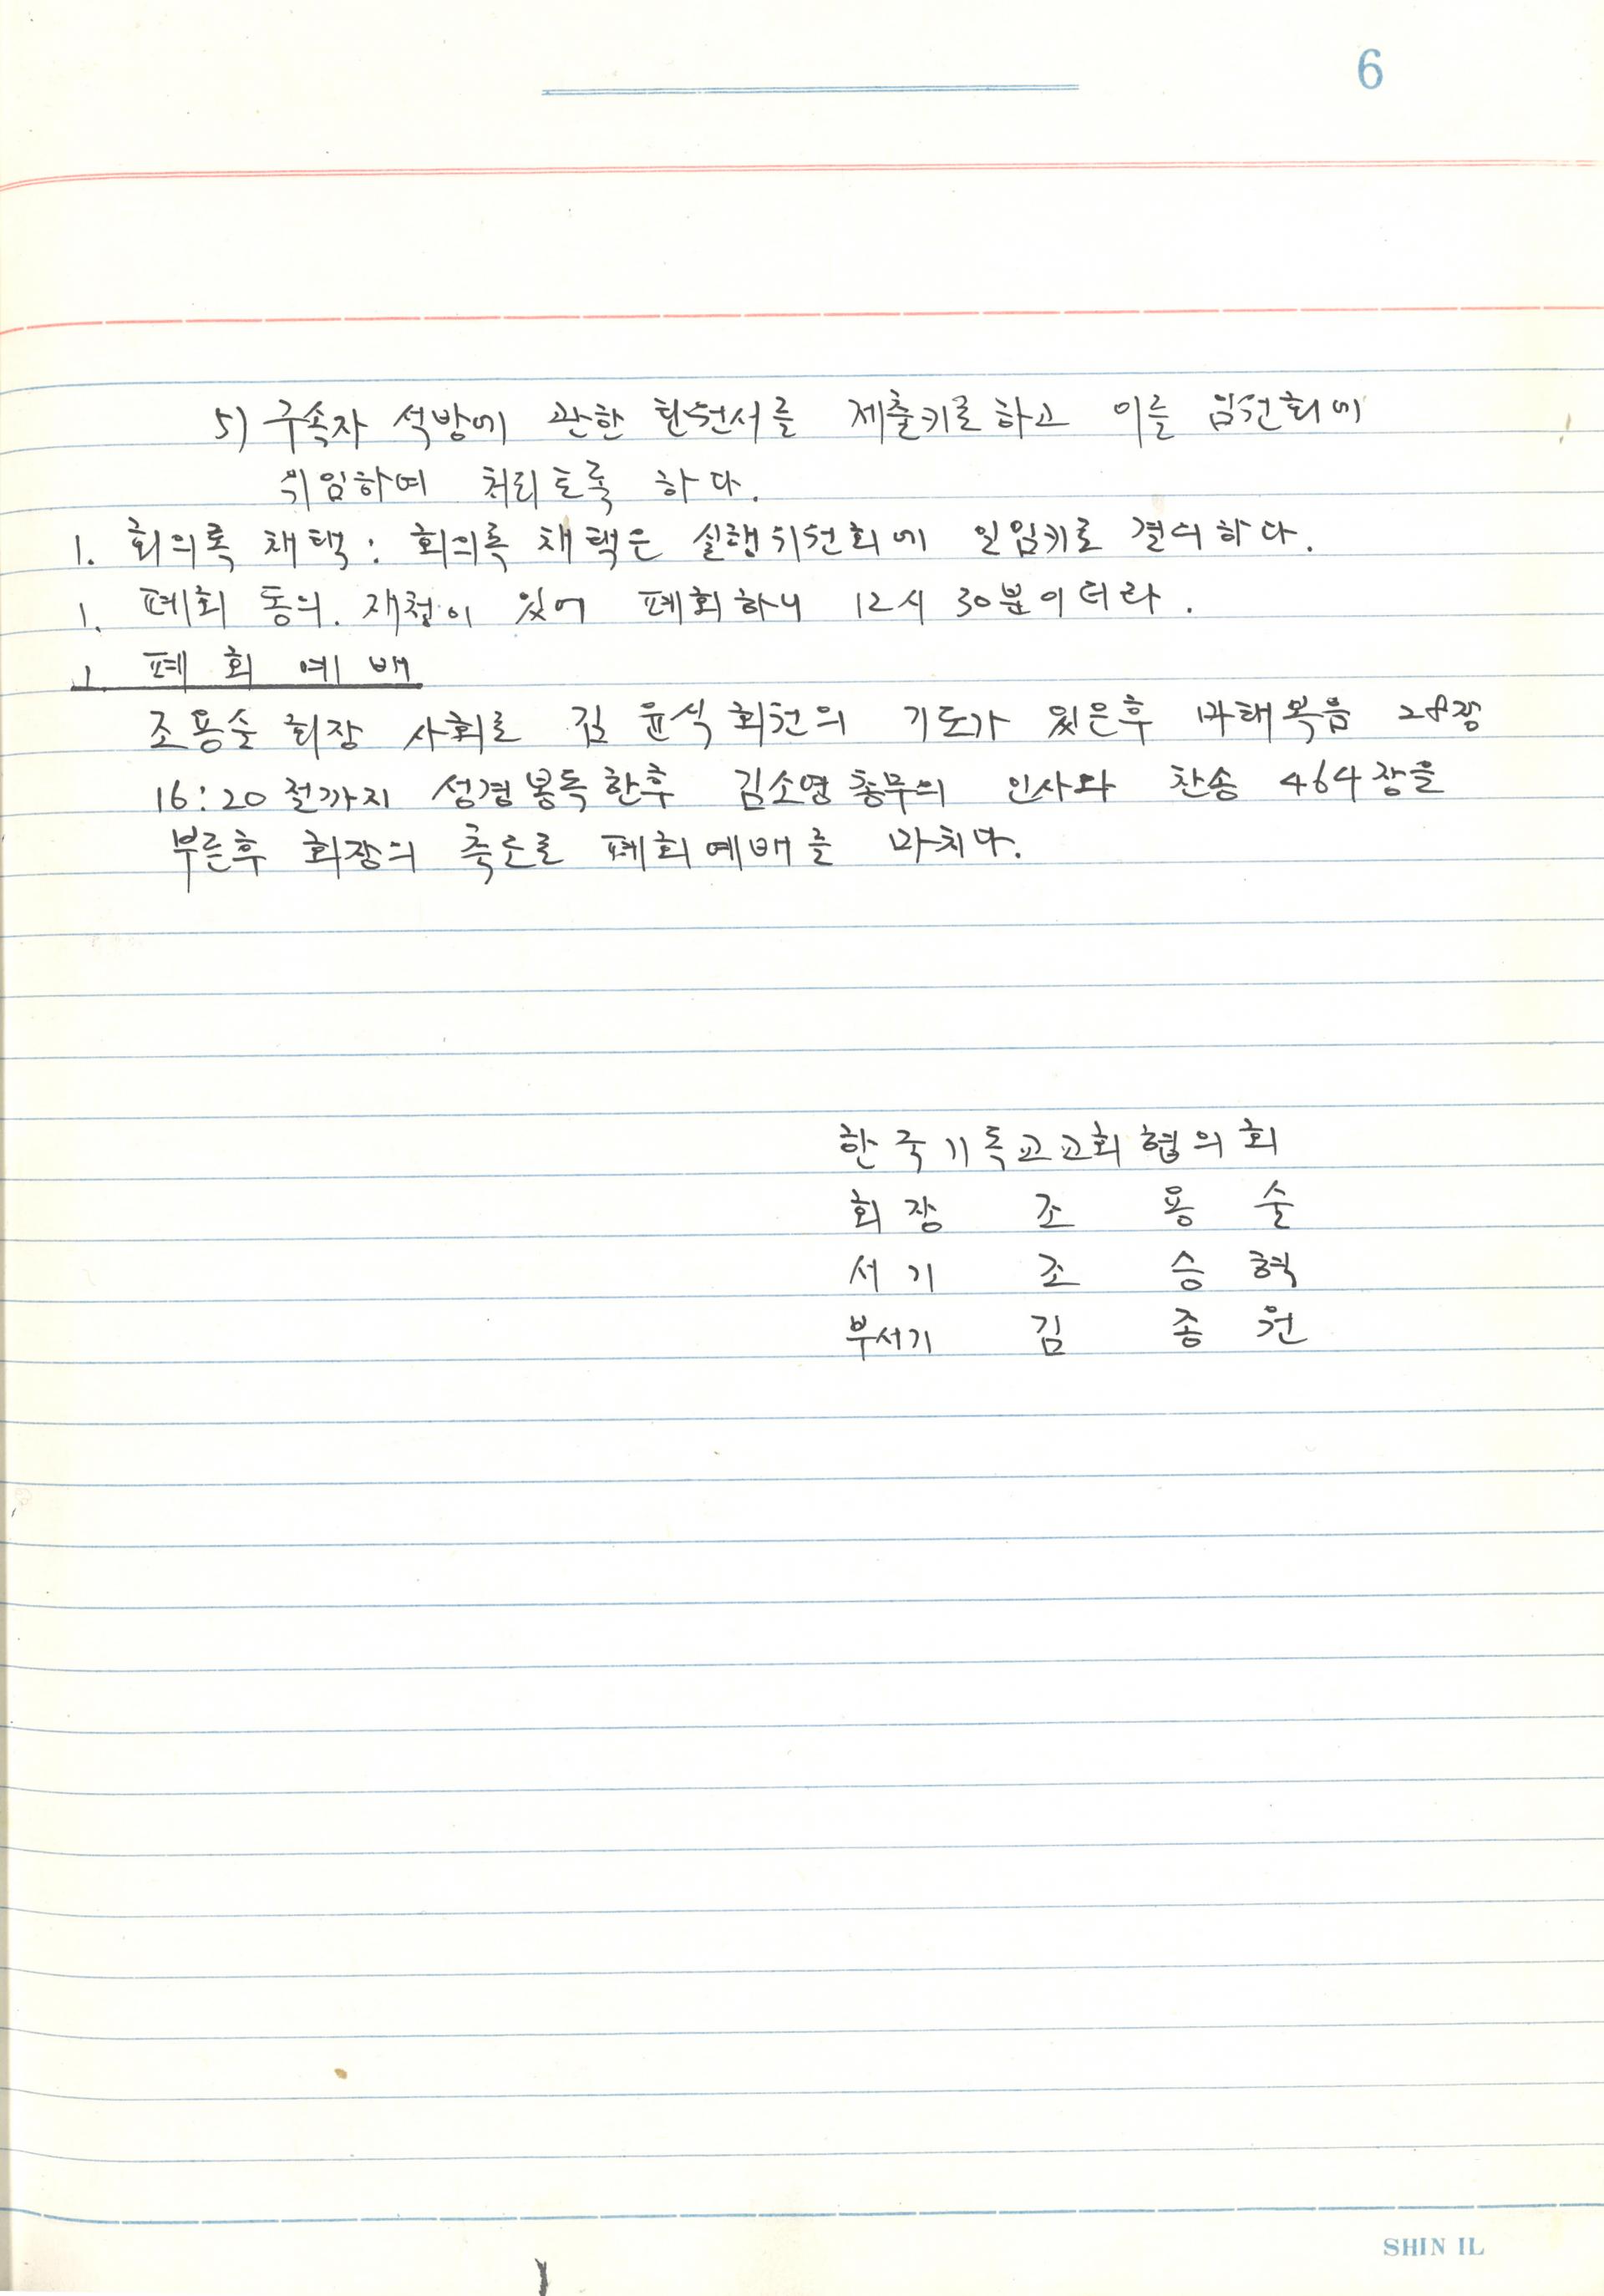 6
5) 구속자 석방에 관한 탄원서를 제출키로 하고 이를 임원회에
위임하여 처리토록 하다.
1. 회의록 채택 : 회의록 채택은 실행위원회에 일임키로 결의하다.
1. 폐회 동의. 재청이 있어 폐회하니 12시 30분이더라.
1. 폐회예배
조용술 회장 사회로 김윤식 회원의 기도가 있은후 마태복음 28장
16:20절까지 성경봉독한후 김소영총무의 인사와 찬송 464장을
부른후 회장의 축도로 폐회예배를 마치다.
한국기독교교회협의회
회장 조용술
서기 조승혁
부서기 김종원
SHIN IL